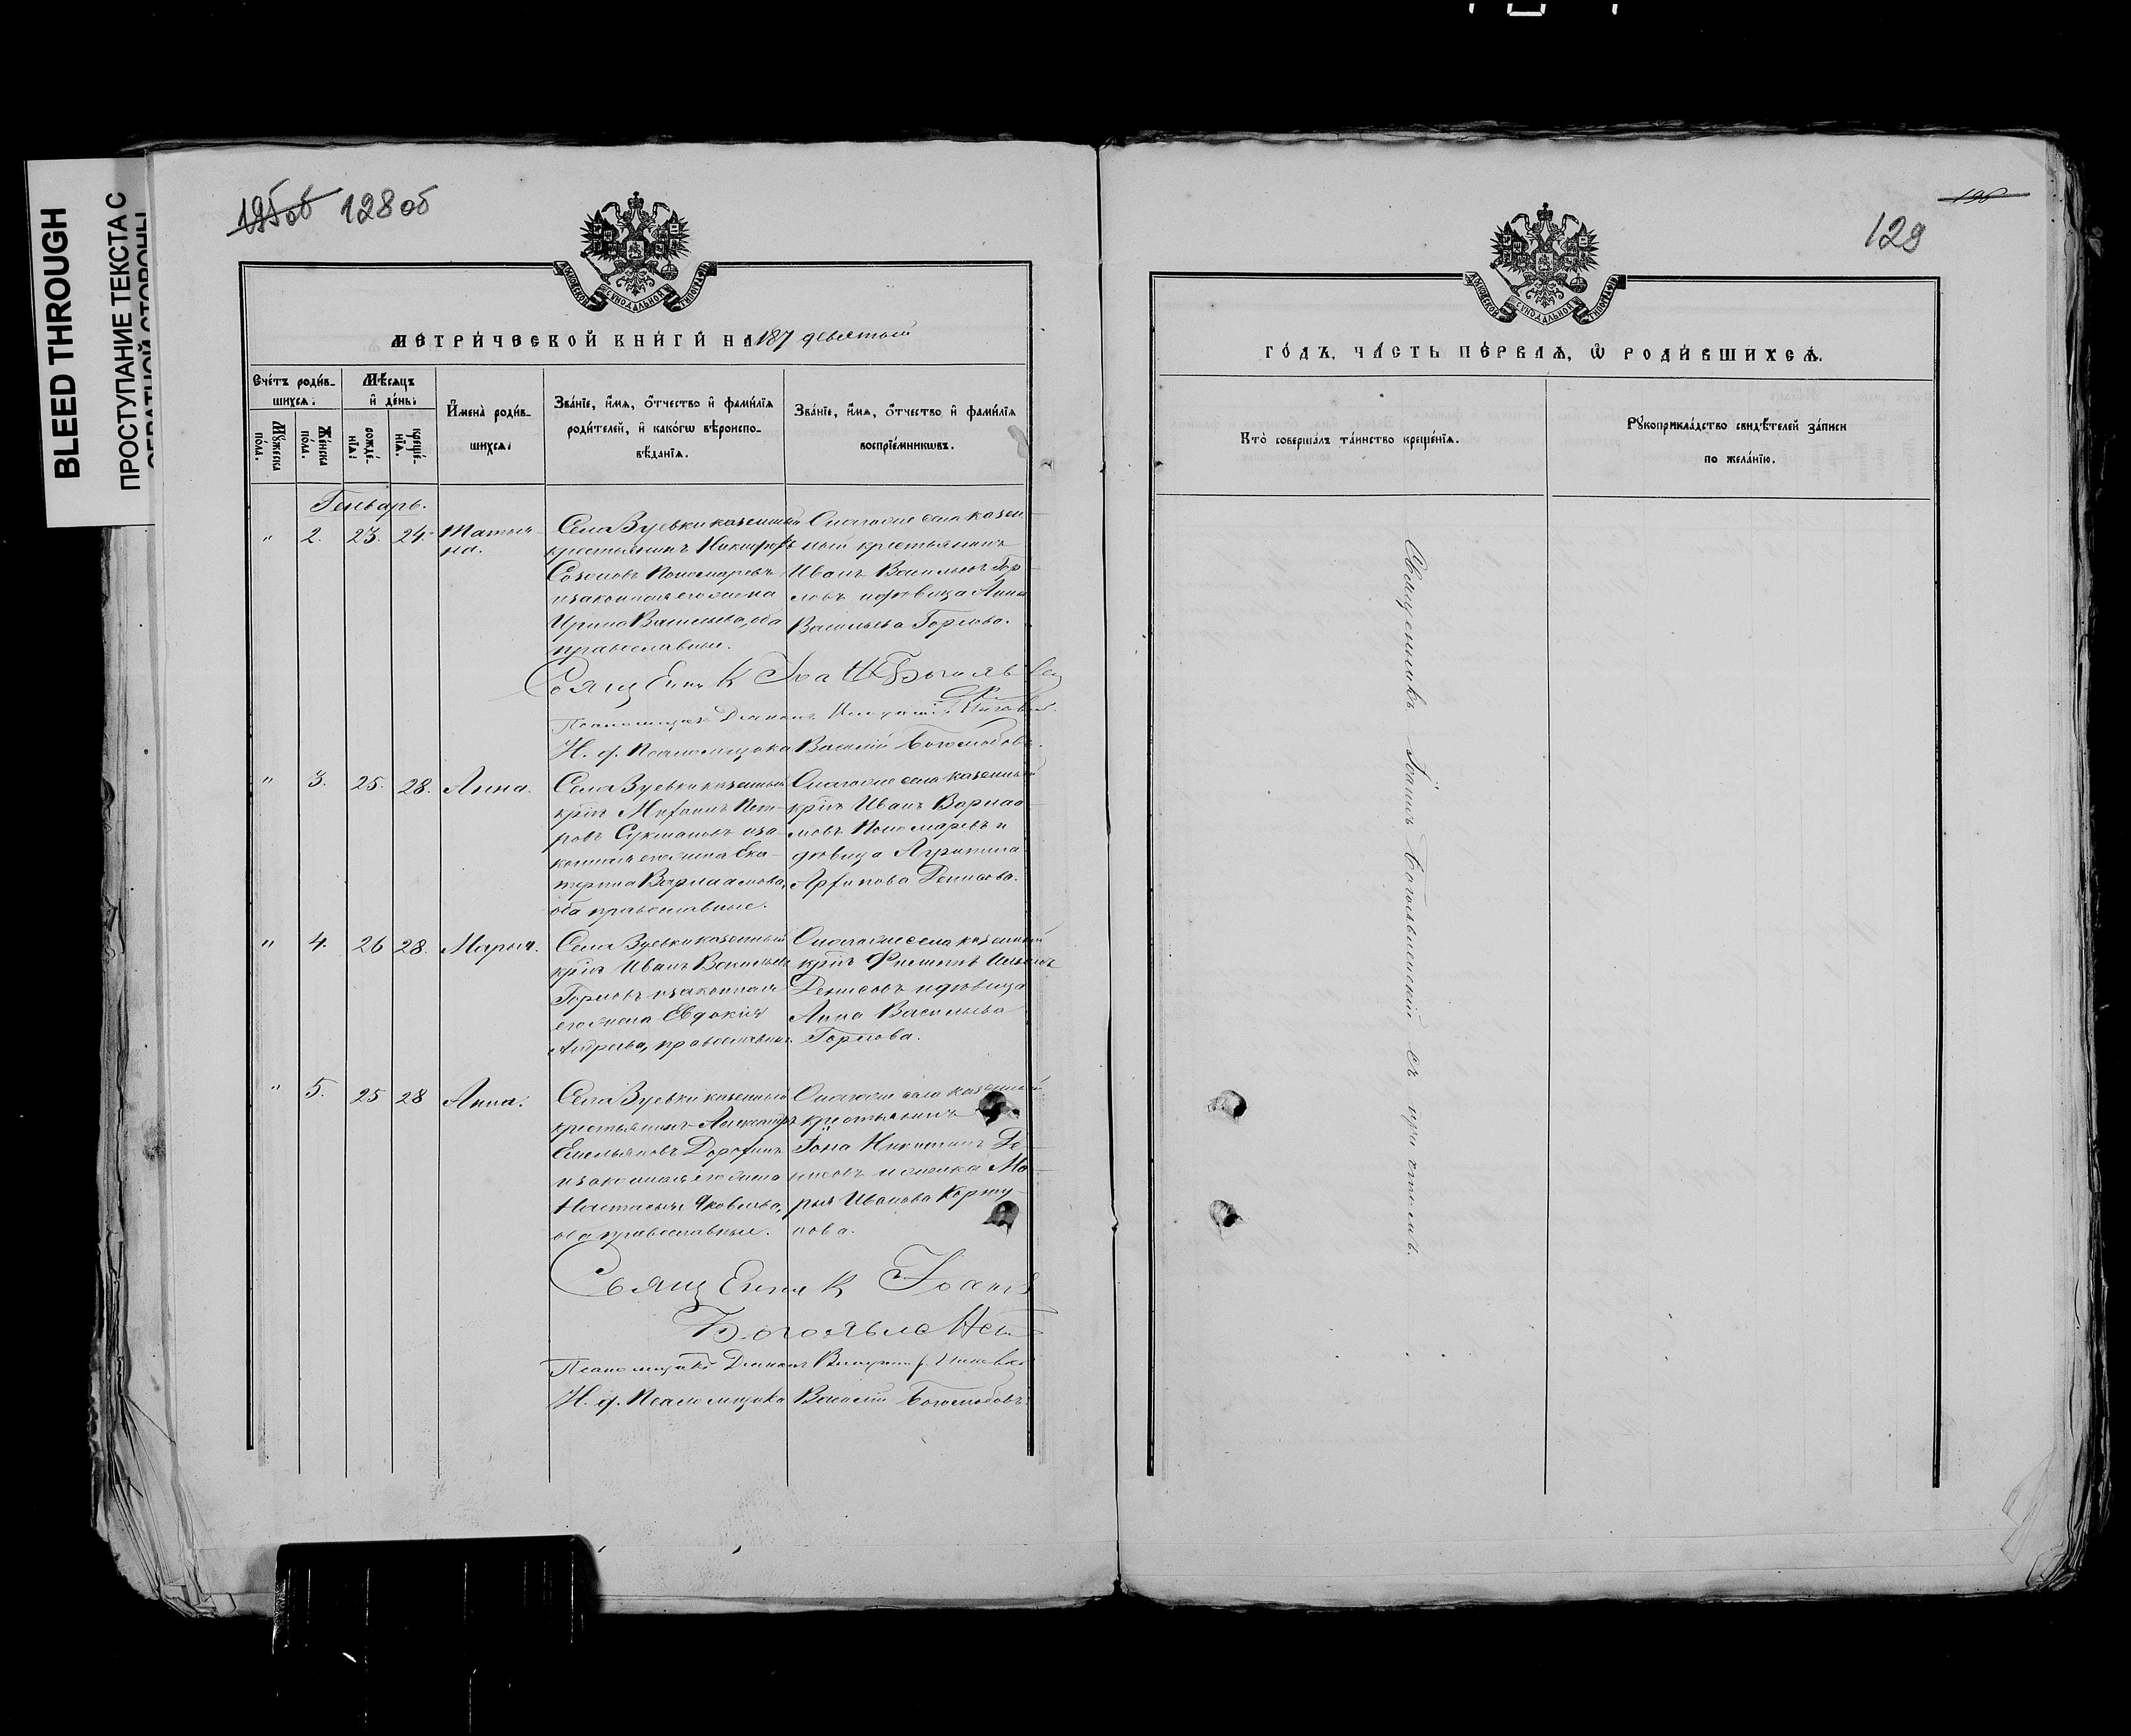 BLEED THROUGH
ПРОСТУПАНИЕ ТЕКСТА С
ОБРАТНОЙ СТОРОНЫ
195об 128 об
МОСКОВСКОЙ СѴНОДАЛЬНОЙ ТИПОГРАФІИ
МЕТРИ́ЧЕСКОЙ КНИ́ГИ НА 187 девятый
Сче́тъ роди́в-
шихся:
Мѣ́сяцъ
и҆ де́нь:
Мꙋ́жеска
по́ла.
Же́нска
по́ла.
рожде́-
нїѧ:
креще́-
нїѧ.
И҆мена̀ роди́в-
шихся:
Зва́нїе, и҆́мѧ, ѻ҆́тчество и҆ фами́лїѧ
роди́телей, и҆ како́гѡ вѣроиспо-
вѣ́данїѧ.
Зва́нїе, и҆́мѧ, ѻ҆́тчество и҆ фами́лїѧ
воспрїе́мникѡвъ.
Генварь.
" 2. 23. 24. Татья-
на.
Села Зуевки казенный
крестьянинъ Никифоръ
Созоновъ Пономаревъ
и законная его жена
Ирина Васильева, оба
православные.
Онагоже села казен-
ный крестьянинъ
Иванъ Васильевъ Гор-
ловъ и девица Анна
Васильева Горлова.
Священникъ Іоаннъ
Псаломщикъ Діаконъ
И. д. Псаломщика Василій Боголюбовъ.
" 3. 25. 28. Анна.
Села Зуевки казенный
кр̃нъ Митфанъ Пет-
ровъ Сукмановъ и за-
конная его жена Ека-
терина Варлаамова,
оба православные.
Онагоже села казенный
кр̃нъ Иванъ Варлаа-
мовъ Пономаревъ и
девица Агрипина
Денисова.
" 4. 26 28. Марья.
Села Зуевки казенный
кр̃нъ Иванъ Васильевъ
Горловъ и законная
его жена Евдокія
Андреева, православные.
Онагоже села казенный
кр̃нъ Филиппъ
Денисовъ и девица
Анна Васильева
Горлова.
" 5. 25 28 Анна.
Села Зуевки казенный
крестьянинъ Александръ
Емельяновъ Дорофинъ
и законная его жена
Настасья Яковлева,
оба православные.
Онагоже села казенный
крестьянинъ
Іона Никитинъ Де-
нисовъ и женка Ма-
рья Иванова Корту-
нова.
Священникъ Іоаннъ
Богоявленскій
Псаломщикъ Діаконъ
И. д. Псаломщика Василій Боголюбовъ.
196
129
МОСКОВСКОЙ СѴНОДАЛЬНОЙ ТИПОГРАФІИ
ГО́ДЪ, ЧА́СТЬ ПЕ́РВАѦ, Ѡ҆ РОДИ́ВШИХСѦ.
Кто̀ соверша́лъ та́инство креще́нїѧ.
Рꙋкоприкла́дство свидѣ́телей за́писи
по жела́нїю.
Священникъ Іоаннъ Богоявленскій съ причтомъ.